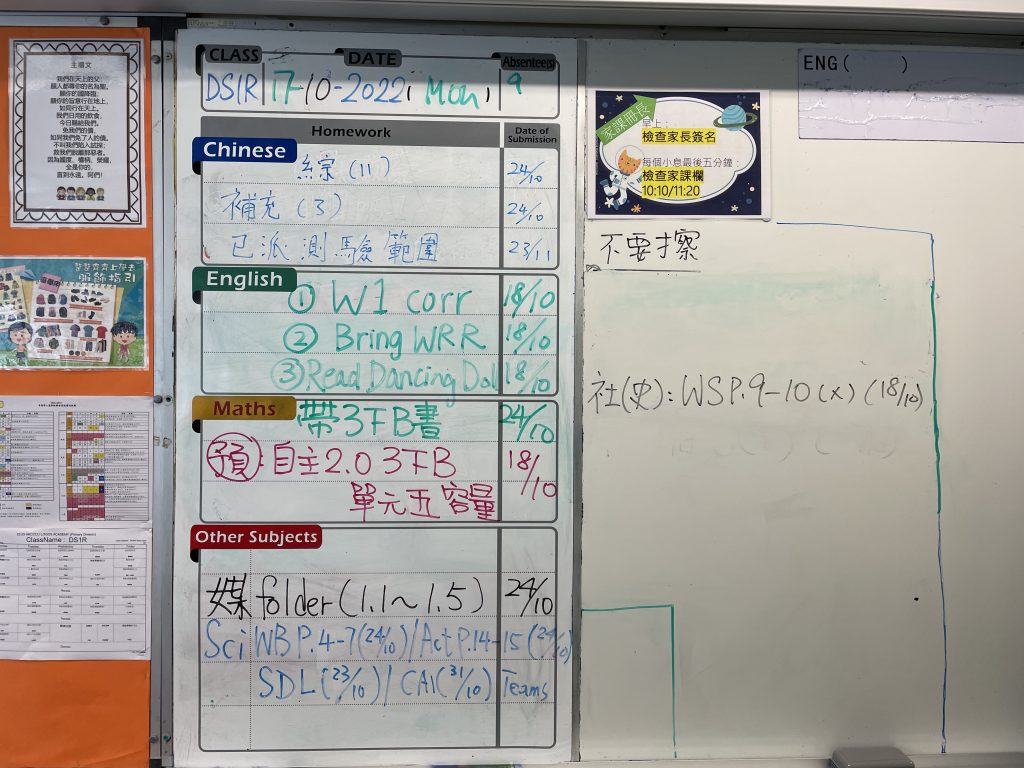 主禱文
我們在天上的父:
願人都尊你的名為聖,
願你的國降臨,
願你的旨意行在地上,
如同行在天上,
我們日用的飲食,
今日賜給我們,
免我們的債,
如同我們免了人的債,
不叫我們陷入試探;
救我們脫離那惡者,
因為國度、權柄、榮耀,
全是你的,
直到永遠。阿們!
服飾指引
ClassName : DS1R
CLASS DATE Absentee(s)
DS1R 17-10-2022, Mon, 9
Homework Date of Submission
Chinese
綜 (11) 24/10
補充 (3) 24/10
已派測驗範圍 23/11
English
① W1 corr 18/10
② Bring WRR 18/10
③ Read Dancing Doll 18/10
Maths
帶3下B書 24/10
預: 自主2.0 3下B 18/10
單元五 容量
Other Subjects
媒 folder (1.1~1.5) 24/10
Sci WB P.4-7 (24/10) / Act P.14-15 (24/10)
SDL (23/10) / CA1 (31/10) Teams
ENG( )
家課冊長
早上:
檢查家長簽名
每個小息最後五分鐘:
檢查家課欄
10:10/11:20
不要才察
社(史): WS P.9-10 (x) (18/10)